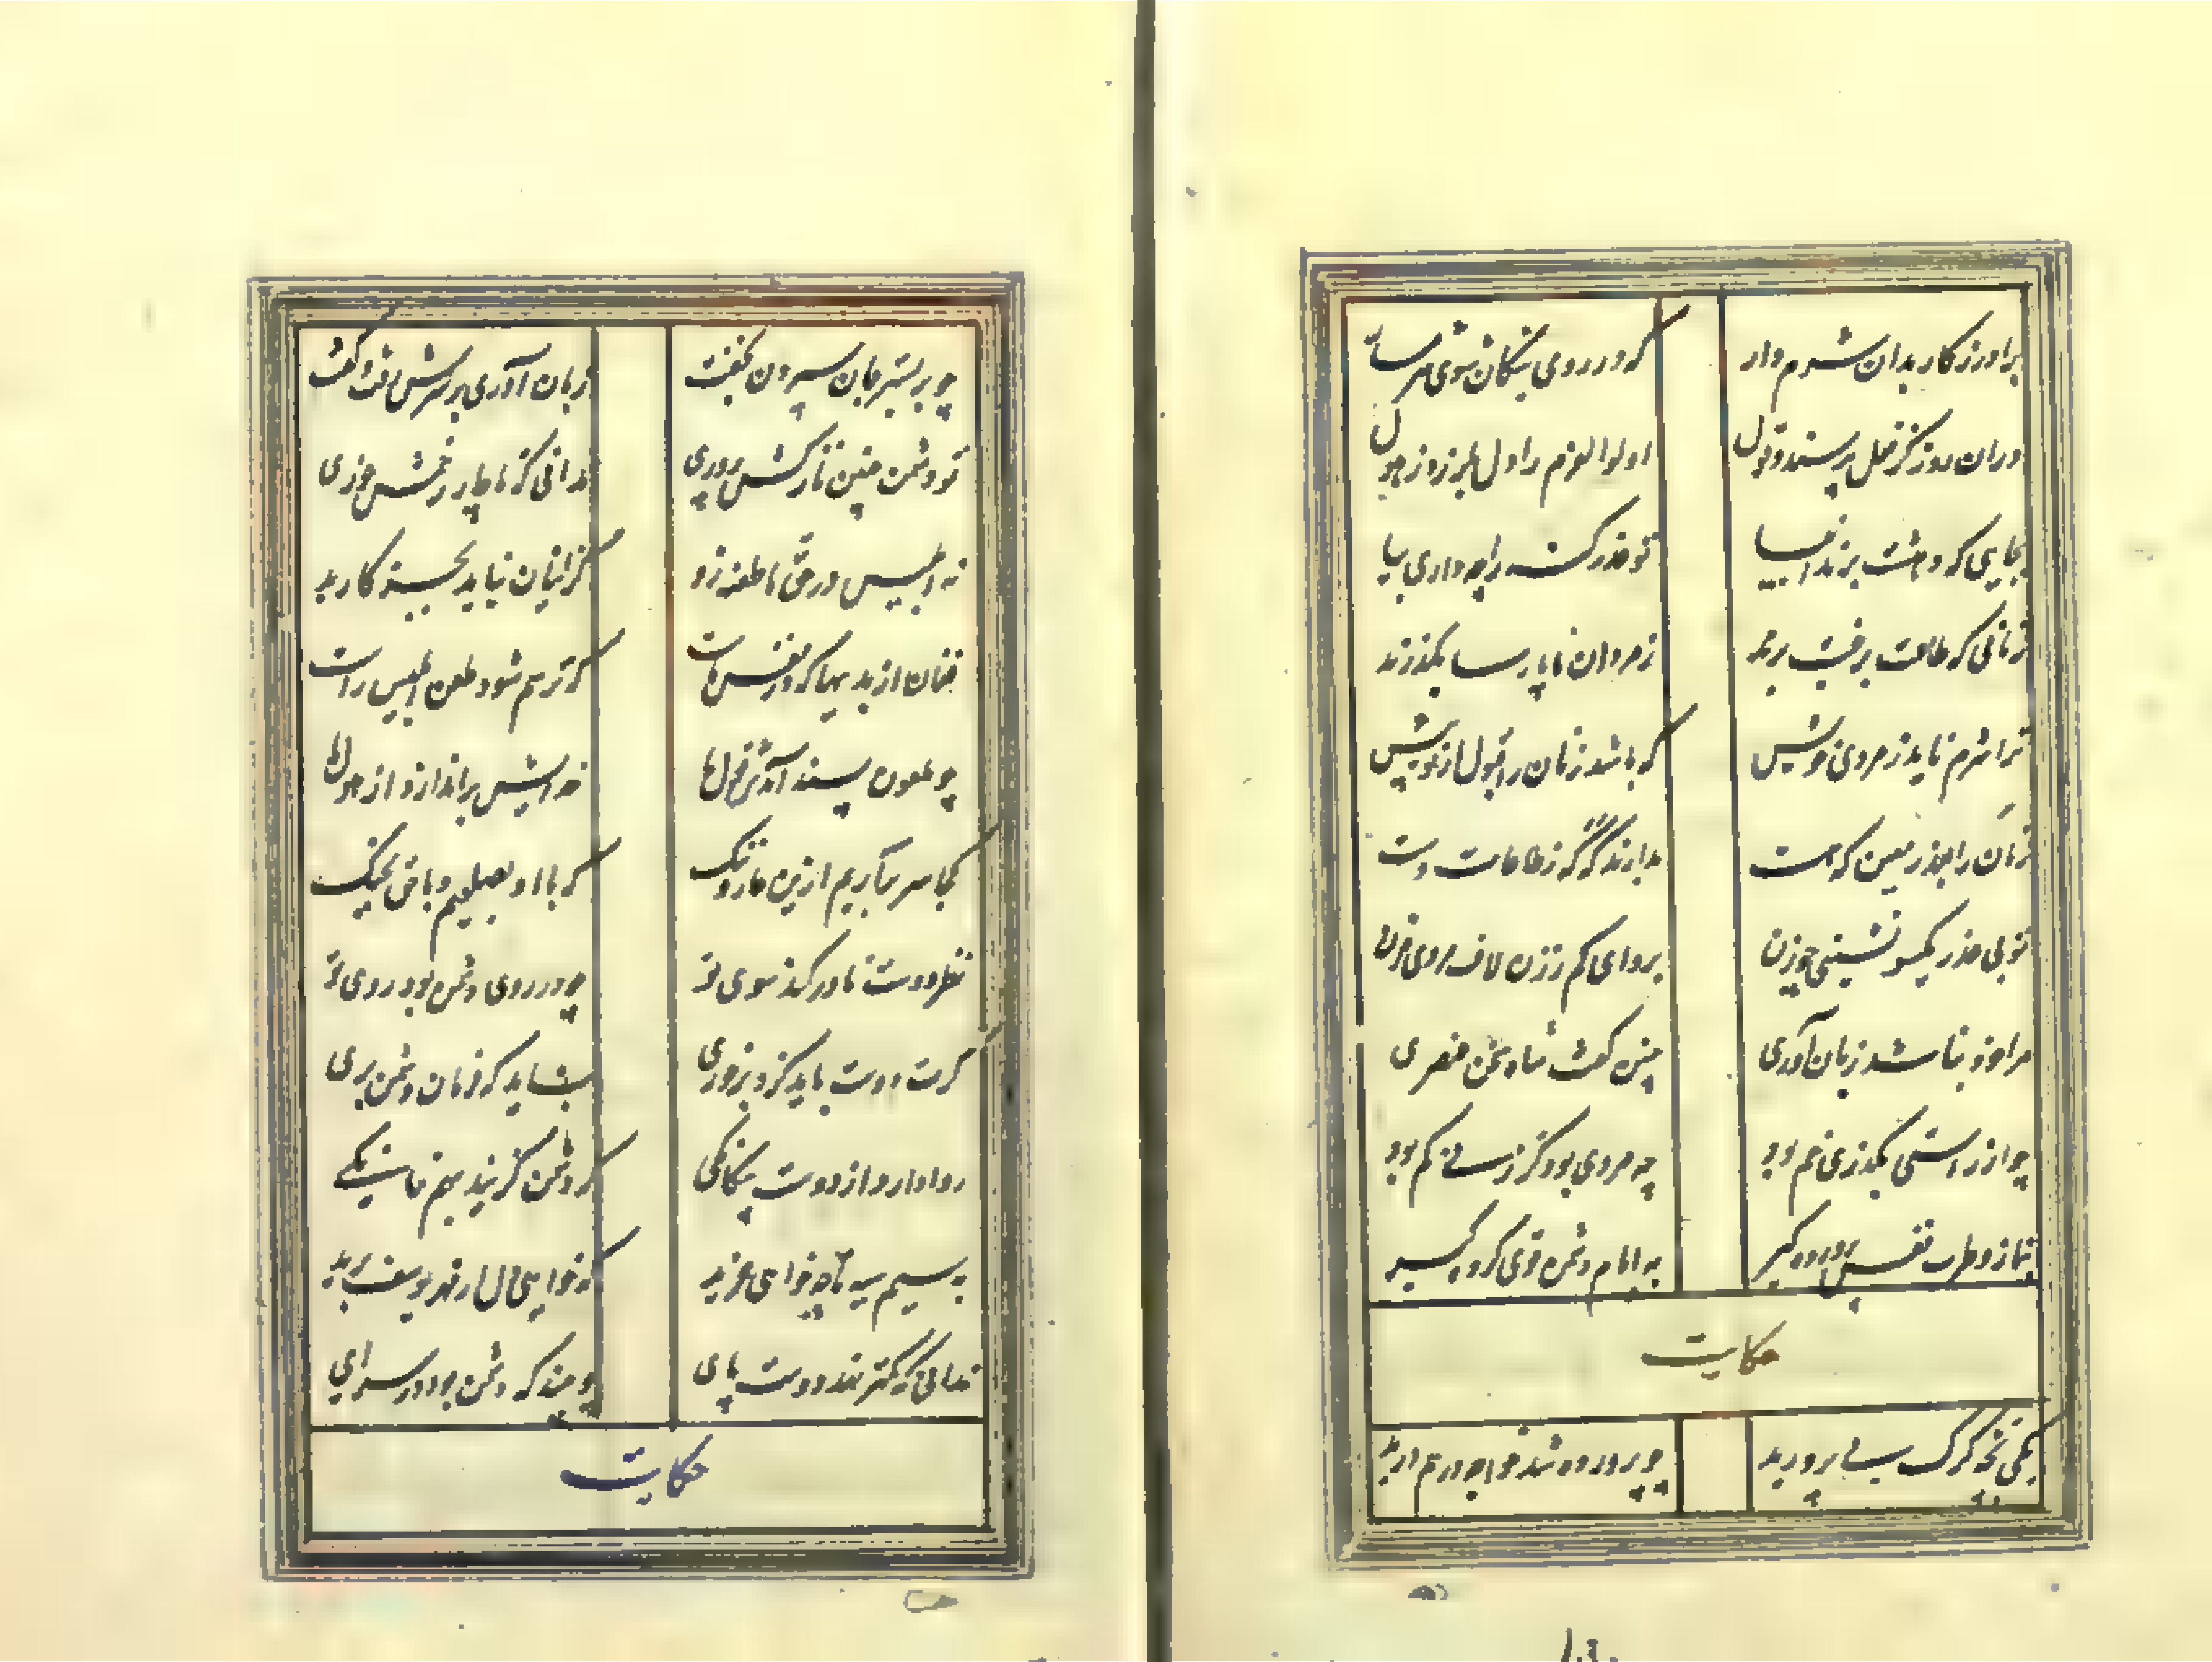 برادر ز کار بدان شرم دار
که در روی نیکان شوی شرمسار
دران روز کز فعل پرسند و قول
اولوالعزم را دل بلرزد ز هول
بجایی که دهشت برند انبیا
تو عذر گنه را چه داری بیا
زنانی که طاعت برغبت برند
ز مردان ناپارسا بگذرند
ترا شرم ناید ز مردی خویش
که باشد زنان را قبول از تو بیش
زنان را بعذر معین که هست
بدارند گه گه ز طاعات دست
تو بی عذر یکسو نشینی چو زن
برو ای کم ز زن لاف مردی مزن
مرا خود نباشد زبان آوری
چنین گفت شاه سخن عنصری
چو از راستی بگذری خم بود
چه مردی بود کز زنی کم بود
بناز و طرب نفس پرورده گیر
به ایام دشمن قوی کرده گیر
حکایت
یکی بچه گرگ می پرورید
چو پرورده شد خواجه درهم درید
چو بر بستر جان سپردن بخفت
زبان آوری بر سرش رفت و گفت
تو دشمن چنین نازکش پروری
ندانی که ناچار زخمش خوری
نه ابلیس در حق ما طعنه زد
کز اینان نیاید بجز کار بد
فغان از بدیها که در نفس ماست
که ترسم شود ظن ابلیس راست
چو ملعون پسند آمدش قول ما
خدایش برانداز از هول ما
کجا سر برآریم ازین عار و ننگ
که با او بصلحیم و با حق بجنگ
نظر دوست نادر کند سوی تو
چو در روی دشمن بود روی تو
گرت دوست باید کزو برخوری
نباید که فرمان دشمن بری
روا دارد از دوست بیگانگی
که دشمن گزیند بهم خانگی
به سیم سیه تا چه خواهی خرید
که خواهی دل از مهر یوسف برید
ندانی که کمتر نهد دوست پای
چو بیند که دشمن بود در سرای
حکایت